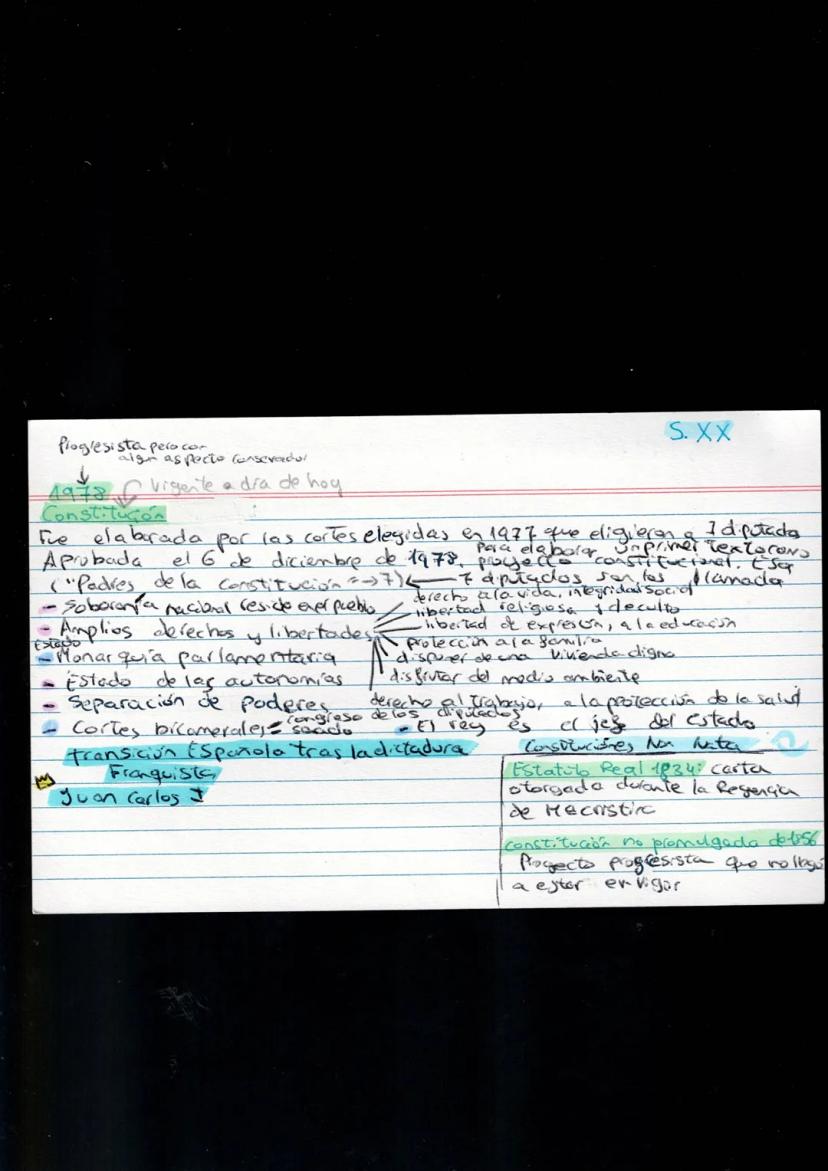 S. XX
Progresista pero con
algun aspecto conservador
1978 vigente a dia de hoy
Constitución
Fue elaborada por las cortes elegidas en 1977 que eligieron a 7 diputados
para elaborar un primer texto como
Aprobada el 6 de diciembre de 1978. proyecto constitucional. Esta
("Padres de la constitución" => 7) ← 7 diputados son los llamada
derecho a la vida, integridad social
- Soberanía nacional reside en el pueblo
libertad religiosa y de culto
- Amplios derechos y libertades
libertad de expresión, a la educación
protección a la familia
Estado
- Monarquía parlamentaria
disponer de una vivienda digna
- Estado de las autonomías
disfrutar del medio ambiente
- Separación de Poderes
derecho al trabajo, a la protección de la salud
- Cortes bicamerales = congreso de los diputados
senado
- El rey es el jefe del estado
transición Española tras la dictadura
Franquista
Juan Carlos I
Constituciones Non Nata
Estatuto Real 1834: carta
otorgada durante la Regencia
de Mª cristina
constitución no promulgada de 1856
Proyecto progresista que no llegó
a estar en vigor